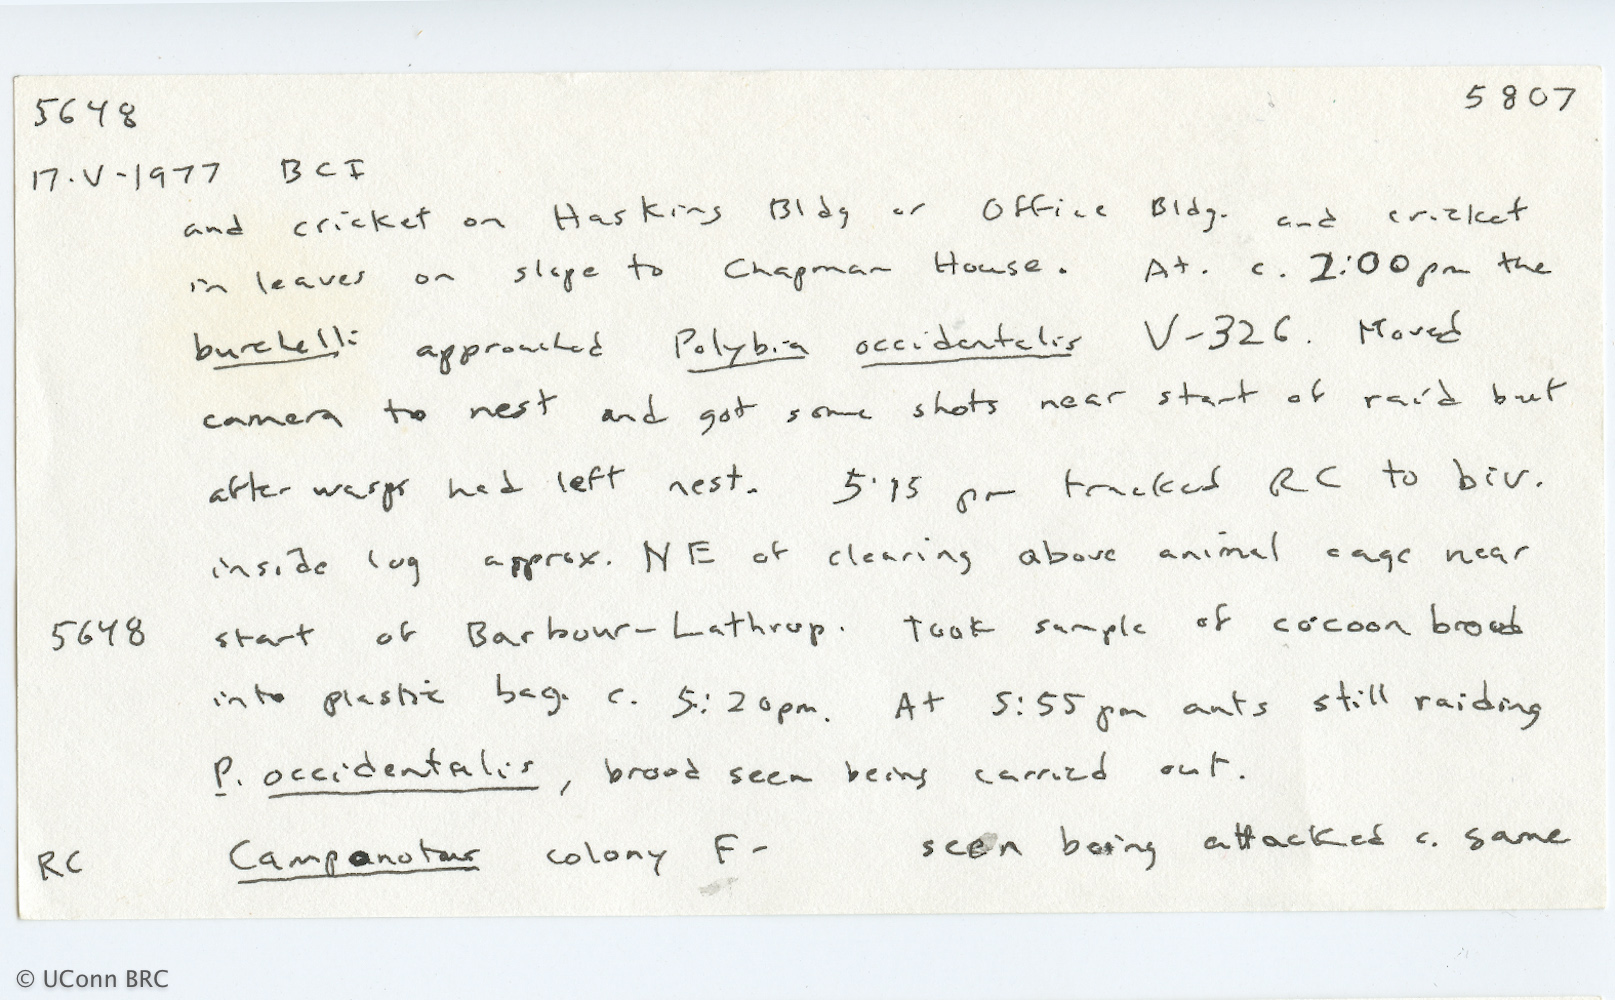 5648 5807
17.V-1977 BCI
and cricket on Haskins Bldg or Office Bldg. and cricket
in leaves on slope to Chapman House. At. c. 2:00 pm the
burchelli approached Polybia occidentalis V-326. Moved
camera to nest and got some shots near start of raid but
after wasps had left nest. 5:15 pm tracked RC to biv.
inside log approx. NE of clearing above animal cage near
5648 start of Barbour-Lathrop. Took sample of cocoon brood
into plastic bag. c. 5:20pm. At 5:55 pm ants still raiding
P. occidentalis, brood seen being carried out.
RC Camponotus colony F- seen being attacked c. same
© UConn BRC